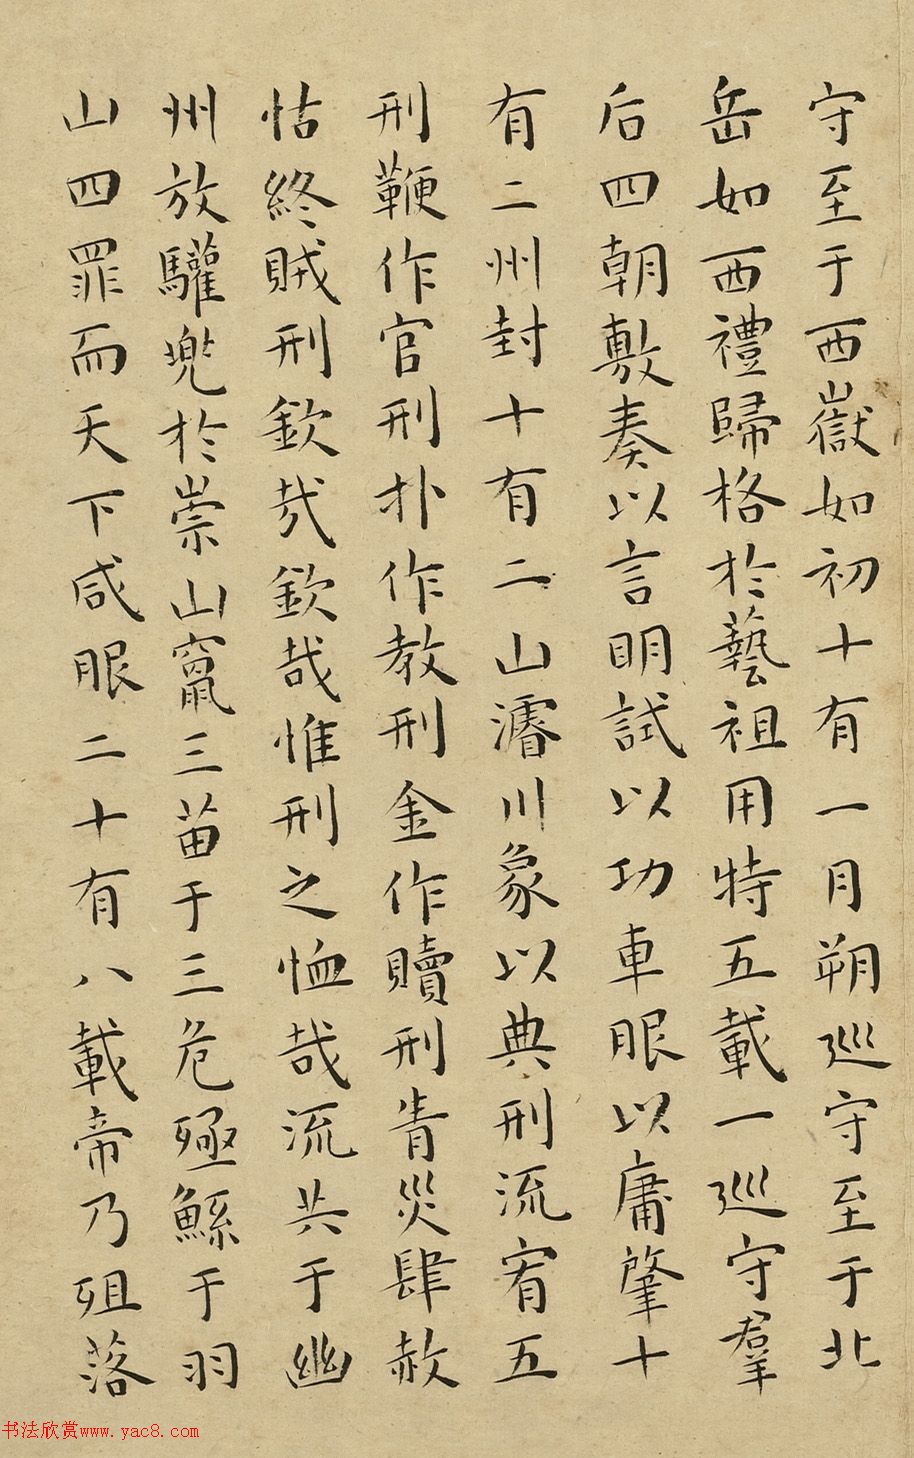 守至于西嶽如初十有一月朔巡守至于北
岳如西禮歸格於藝祖用特五載一巡守羣
后四朝敷奏以言明試以功車服以庸肇十
有二州封十有二山濬川象以典刑流宥五
刑鞭作官刑扑作教刑金作贖刑眚災肆赦
怙終賊刑欽哉欽哉惟刑之恤哉流共于幽
州放驩兜於崇山竄三苗于三危殛鯀于羽
山四罪而天下咸服二十有八載帝乃殂落
书法欣赏www.yac8.com